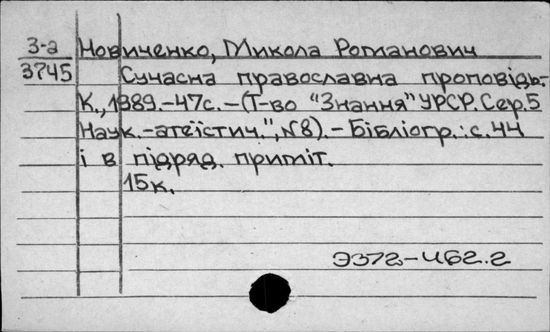 З-а Новиченко, Микола Романович
3745 Сучасна православна проповідь.-
К., 1989.-47с.-(Т-во "Знання" УРСР. Сер. 5
"Наук.-атеїстич.", N8).-Бібліогр.: с. 44
і в підряд. приміт.
15к.
Э372-462.2